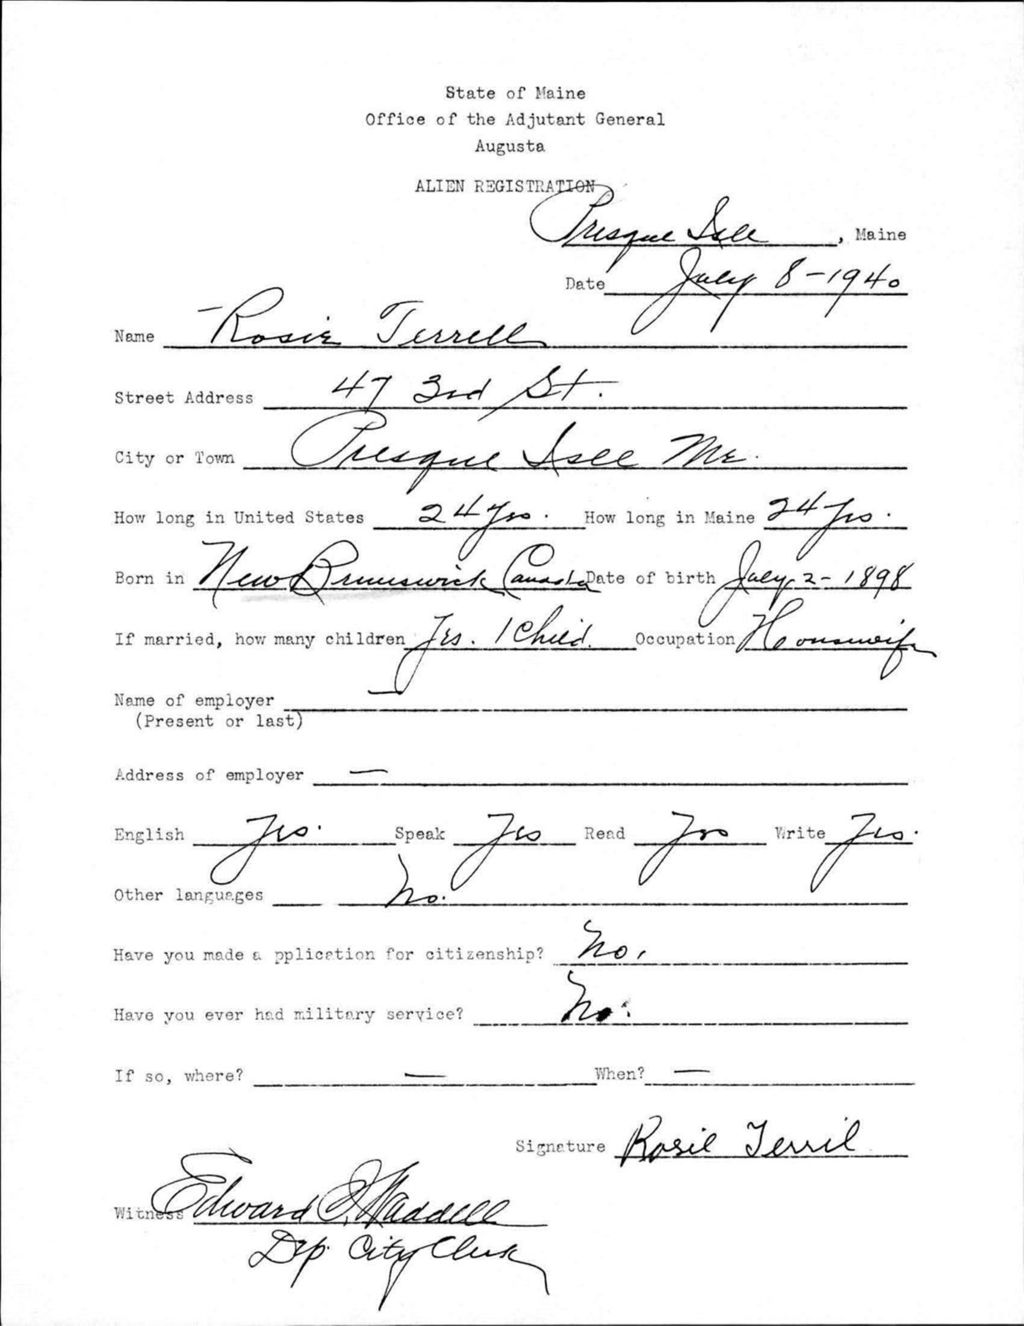 State of Maine
Office of the Adjutant General
Augusta
ALIEN REGISTRATION
Presque Isle, Maine
Date July 8-1940
Name Rosie Terrell
Street Address 47 3rd St.
City or Town Presque Isle Me.
How long in United States 24 Yrs. How long in Maine 24 Yrs.
Born in New Brunswick Canada Date of birth July 2-1898
If married, how many children Yes. 1 Child. Occupation Housewife
Name of employer —
(Present or last)
Address of employer —
English Yes. Speak Yes Read Yes Write Yes.
Other languages No.
Have you made a pplication for citizenship? No.
Have you ever had military service? No.
If so, where? — When? —
Signature Rosie Terril
Witness Edward I. Waddell
Dep. City Clerk